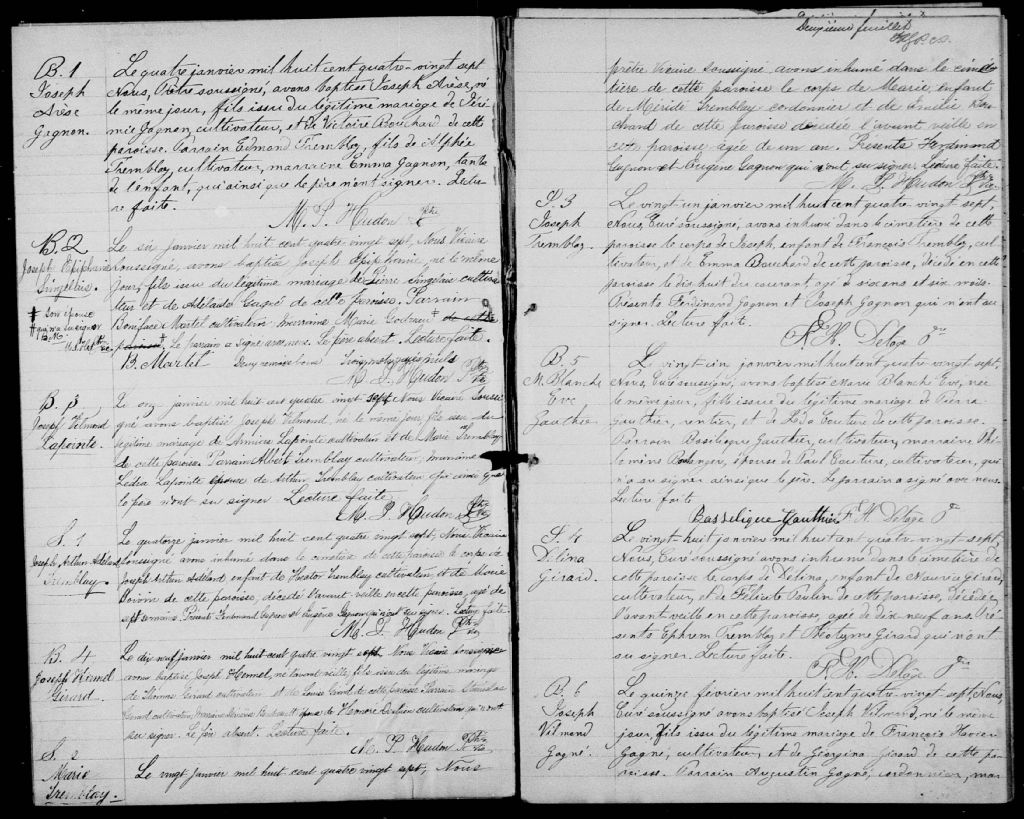 B. 1
Joseph
Arèse
Gagnon.
Le quatre janvier mil huit cent quatre-vingt sept
Nous, Prêtre soussigné, avons baptisé Joseph Arèse, né
le même jour, fils issu du légitime mariage de Jéré-
mie Gagnon, cultivateur, et de Victoire Bouchard de cette
paroisse. Parrain Edmond Tremblay, fils de Alphée
Tremblay, cultivateur, marraine Emma Gagnon, tante
de l'enfant, qui ainsi que le père n'ont signer. Lectu-
re faite.
M. P. Hudon Ptre
B. 2
Joseph Epiphane
Singelais.
Le six janvier mil huit cent quatre vingt sept, Nous Vicaire
soussigné, avons baptisé Joseph Epiphane, né le même
jour, fils issu du légitime mariage de Pierre Singelais cultiva-
teur et de Adelaide Gagné de cette paroisse. Parrain
Boniface Martel cultivateur marraine Marie
‡ Son épouse
paroisse. Le parrain a signé avec nous. Le père absent. Lecture faite.
B. Martel Deux renvois bons Trois mots rayés nuls
M. P. Hudon Ptre Vic
B. 3
Joseph Vilmond
Lapointe.
Le onze janvier mil huit cent quatre vingt sept Nous Vicaire soussi-
gné avons baptisé Joseph Vilmond, né le même jour fils issu du
légitime mariage de Lapointe cultivateur et de Marie Tremblay
de cette paroisse. Parrain Albert Tremblay cultivateur, marraine
Ledea Lapointe épouse de Arthur Tremblay cultivateur qui ainsi que
le père n'ont su signer Lecture faite
M. P. Hudon Ptre Vic
S. 1
Joseph Arthur Adélard
Tremblay.
Le quatorze janvier mil huit cent quatre vingt sept, Nous Vicaire
soussigné avons inhumé dans le cimetière de cette paroisse le corps de
Joseph Arthur Adélard enfant de Hector Tremblay cultivateur et de Marie
Boivin de cette paroisse, décédé l'avant veille en cette paroisse, agé de
sept semaines. Présents Ferdinand Gagnon et Eugène Gagnon qui n'ont su signer. Lecture faite.
M. P. Hudon Ptre Vic
B. 4
Joseph
Girard.
Le dix neuf janvier mil huit cent quatre vingt sept, Nous Vicaire soussigné
avons baptisé Joseph né l'avant veille, fils issu du légitime mariage
de Thomas Girard cultivateur et de Louise Girard de cette paroisse Parrain Stanislas
Girard cultivateur, marraine épouse de Honoré cultivateur qui n'ont
su signer. Le père absent. Lecture faite.
M. P. Hudon Ptre Vic
S. 2
Marie
Tremblay.
Le vingt janvier mil huit cent quatre vingt sept, Nous
Deuxième feuillet
prêtre Vicaire soussigné avons inhumé dans le cime-
tière de cette paroisse le corps de Marie, enfant
de Méridé Tremblay cordonnier et de Emélie Bou-
chard de cette paroisse décédée l'avant veille en
cette paroisse agée de un an. Présents Ferdinand
Gagnon et Eugène Gagnon qui n'ont su signer. Lecture faite.
M. P. Hudon Ptre Vic
S. 3
Joseph
Tremblay.
Le vingt-un janvier mil huit cent quatre-vingt sept,
Nous, Curé soussigné, avons inhumé dans le cimetière de cette
paroisse le corps de Joseph, enfant de François Tremblay, cul-
tivateur, et de Emma Bouchard de cette paroisse, décédé en cette
paroisse le dix huit du courant, agé de six ans et six mois.
Présents Ferdinand Gagnon et Joseph Gagnon qui n'ont su
signer. Lecture faite.
F. H. Delage Ptre
B. 5
M. Blanche
Eve
Gauthier
Le vingt-un janvier mil huit cent quatre-vingt sept,
Nous, Curé soussigné, avons baptisé Marie Blanche Eve, née
le même jour, fille issue du légitime mariage de Pierre
Gauthier, rentier, et de Leda Couture de cette paroisse.
Parrain Basilique Gauthier, cultivateur, marraine Phi-
lomène Boulanger, épouse de Paul Couture, cultivateur, qui
n'a su signer ainsi que le père. Le parrain a signé avec nous.
Lecture faite.
Basselique Gauthier F. H. Delage Ptre
S. 4
Délina
Girard.
Le vingt-huit janvier mil huit cent quatre-vingt sept,
Nous, Curé soussigné avons inhumé dans le cimetière de
cette paroisse le corps de Délina, enfant de Maurice Girard,
cultivateur, et de Félicité Poulin de cette paroisse, décédée
l'avant veille en cette paroisse, agée de dix neuf ans. Pré-
sents Ephrem Tremblay et Théotyme Girard qui n'ont
su signer. Lecture faite.
F. H. Delage Ptre
B. 6
Joseph
Vilmond
Gagné.
Le quinze février mil huit cent quatre-vingt-sept, Nous,
Curé soussigné avons baptisé Joseph Vilmond, né le même
jour, fils issu du légitime mariage de François Xavier
Gagné, cultivateur, et de Géorgina Girard de cette pa-
roisse. Parrain Augustin Gagné, cordonnier, mar-